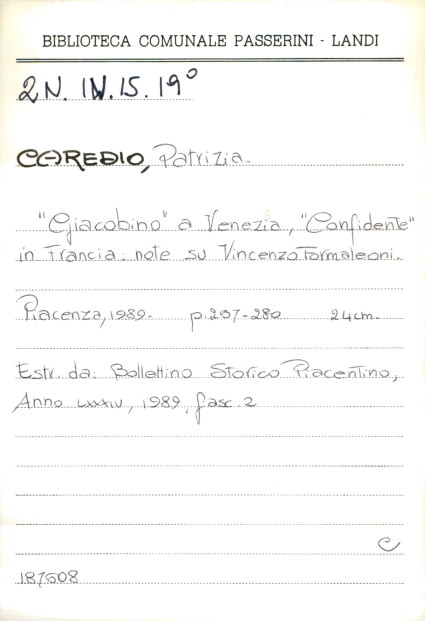 BIBLIOTECA COMUNALE PASSERINI - LANDI
2N. IV. 15. 19°
Patrizia.
"Giacobino" a Venezia, "Confidente"
in Francia: note su Vincenzo Formaleoni.
Piacenza, 1989. p. 237-280 24 cm.
Estr. da: Bollettino Storico Piacentino,
Anno LXXXIV, 1989, fasc. 2
C
187608